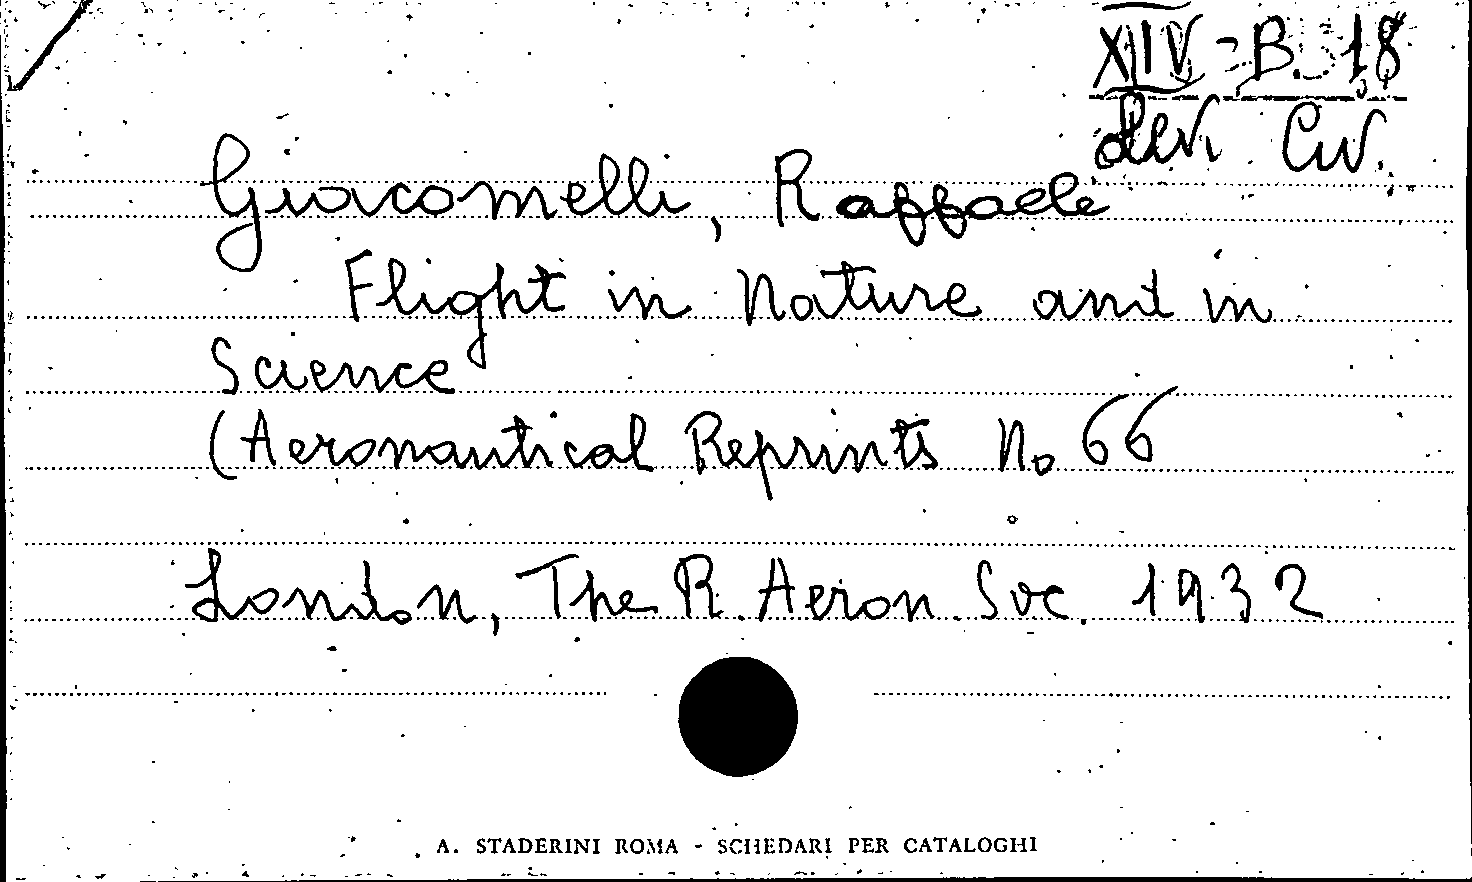 XIV - B. 18
dev. Civ.
Giacomelli, Raffaele
Flight in Nature and in
Science
(Aeronautical Reprints No 66
London, The R. Aeron. Soc. 1932
A. STADERINI ROMA - SCHEDARI PER CATALOGHI